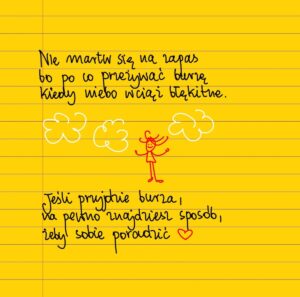 Nie martw się na zapas
bo po co przeżywać burzę
kiedy niebo wciąż błękitne.
Jeśli przyjdzie burza,
na pewno znajdziesz sposób,
żeby sobie poradzić